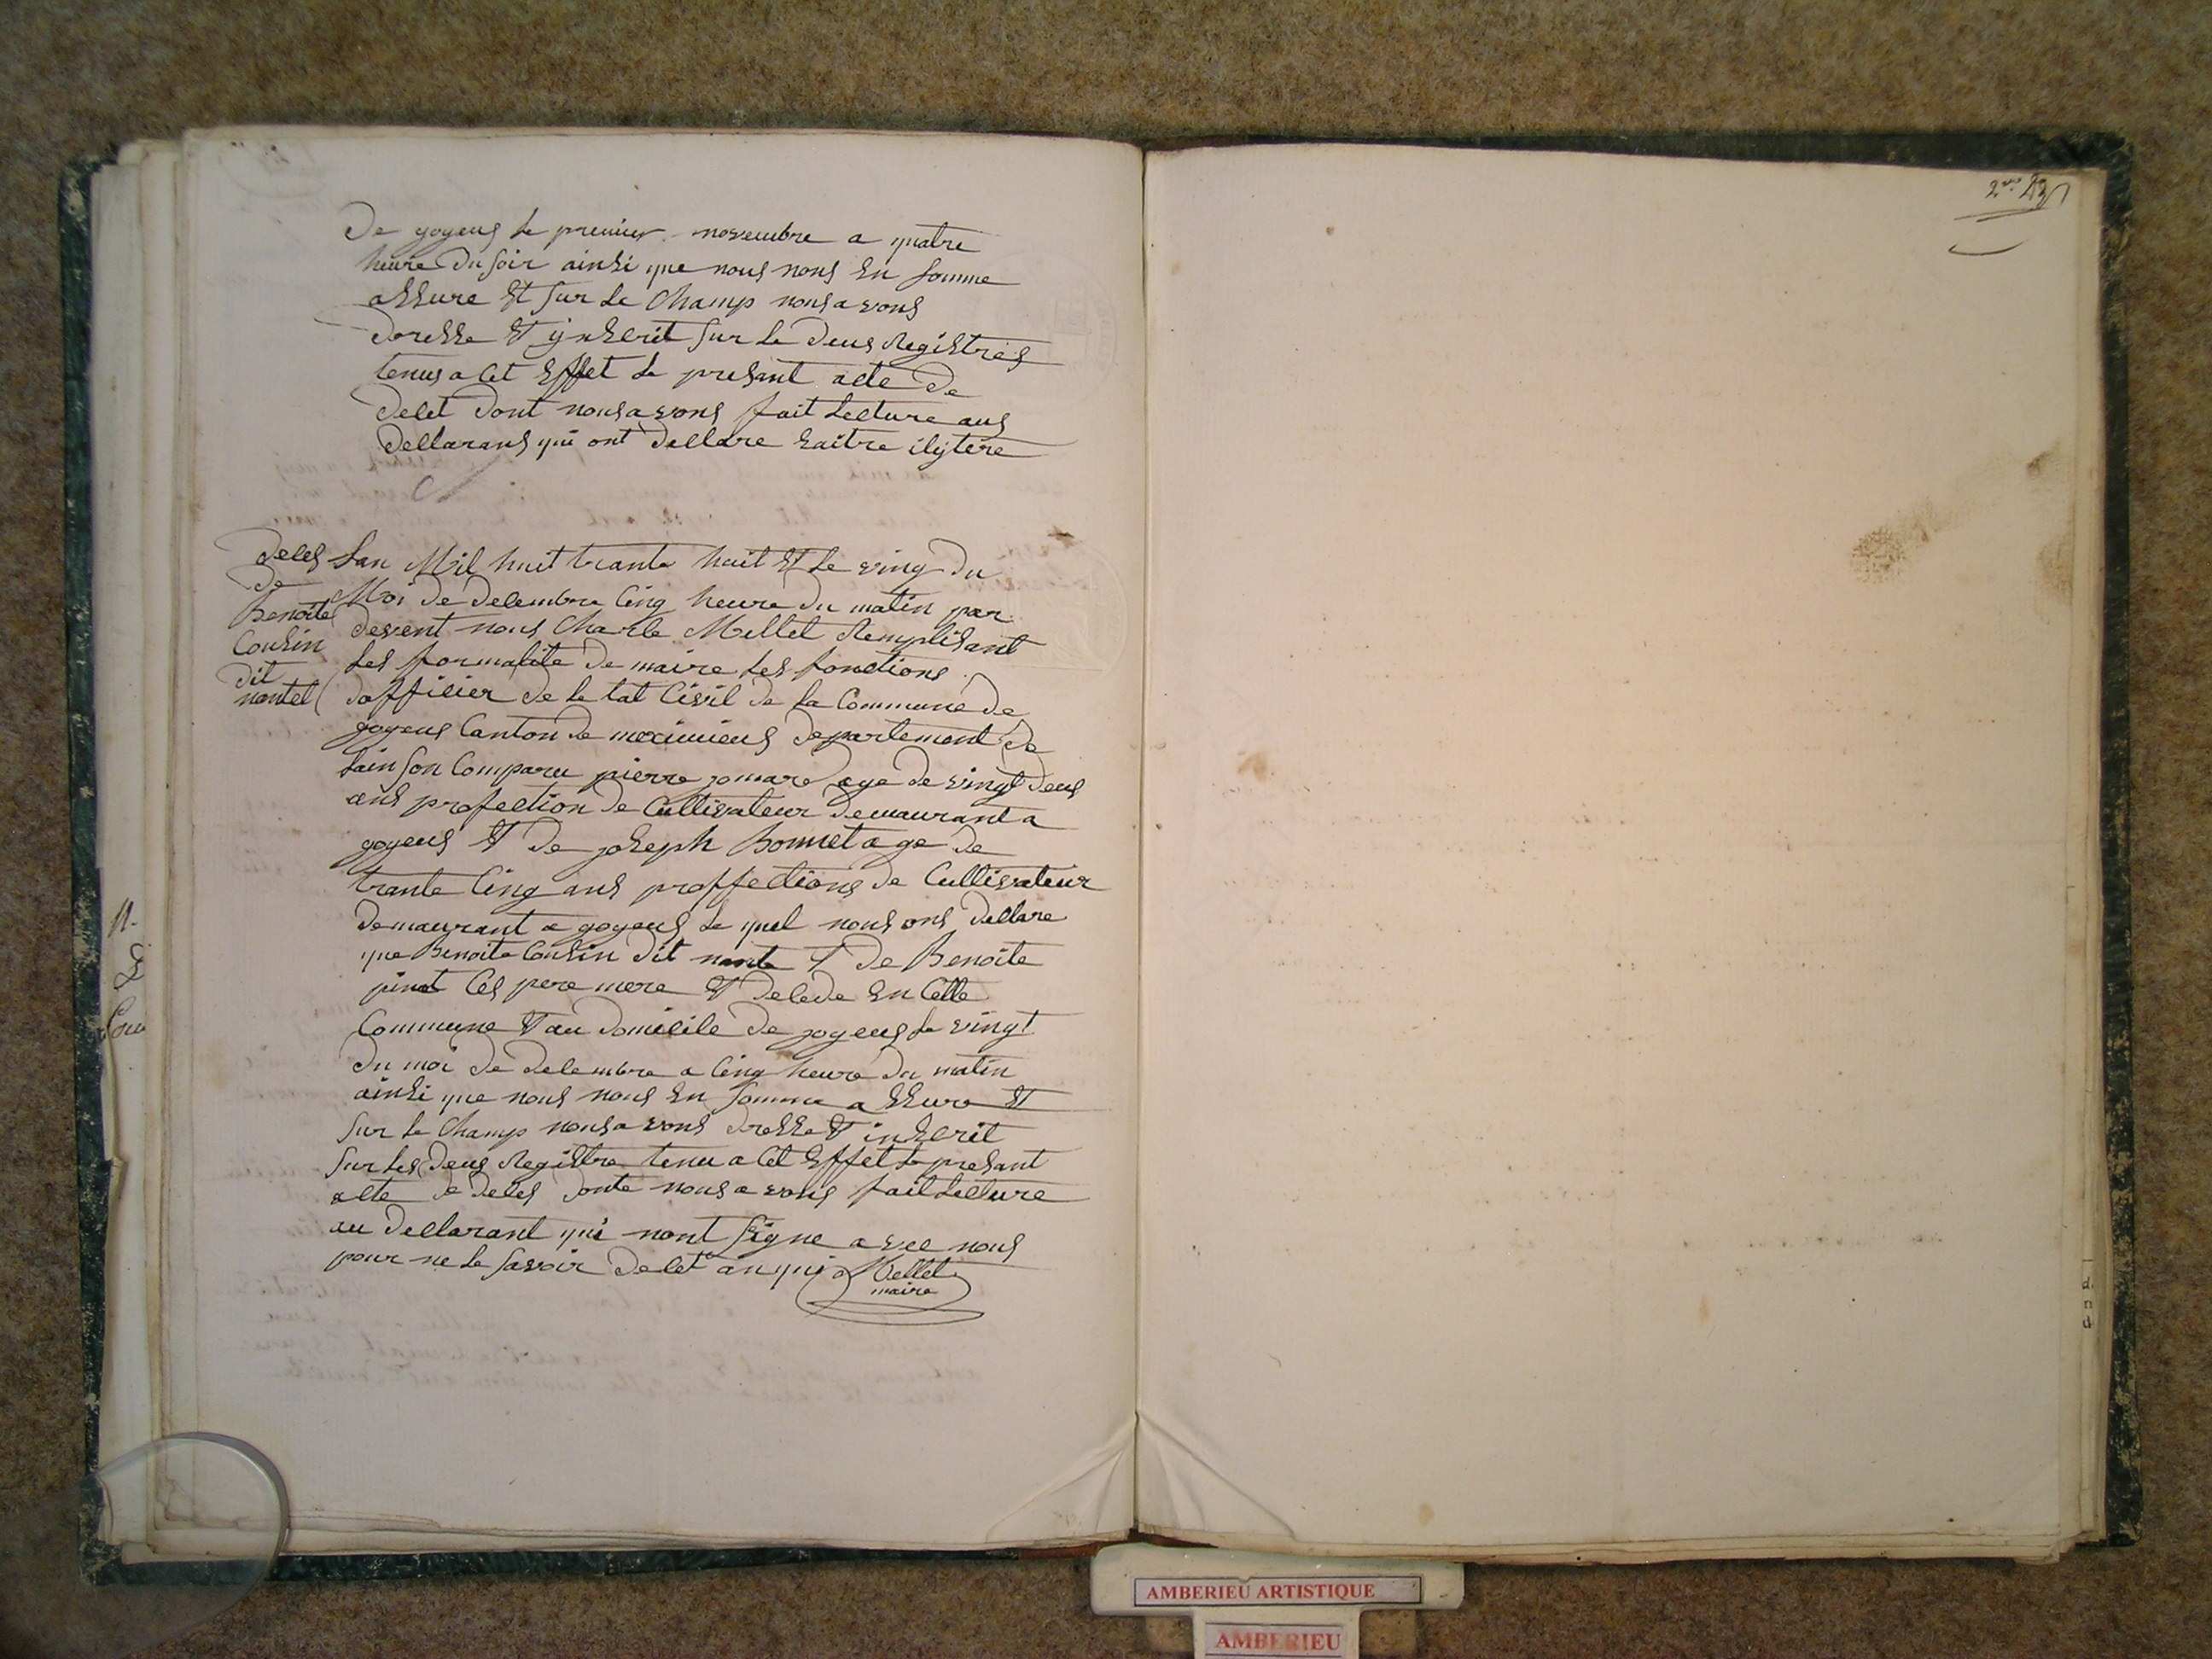 De yoyeus le premier novembre a quatre
heure du soir ainsi que nous nous en somme
assure et sur le champ nous avons
dresse et ynscrit sur le deus Registres
tenus a cet effet le presant acte de
decet dont nous avons fait lecture aus
declarans qui ont declare saitre ilytere
deces
de
Benoite
Cousin
dit
nantet
Lan Mil huit trante huit et le ving du
Moi de decembre cinq heure du matin par
devent nous Charle Mellet Remplisant
les formalite de maire les fonctions
dofficier de le tat Civil de la Commune de
joyeus Canton de meximieus departement de
lain son Comparu pierre jomare age de vingt deus
ans profection de Cultivateur demaurant a
joyeus et de joseph Bonnet age de
trante cinq ans proffections de Cultivateur
demaurant a joyeus le quel nous ons declare
que Benoite Cousin dit et de Benoite
pinat ces pere mere et decede en cette
Commune et au domicile de joyeus le vingt
du moi de decembre a cinq heure du matin
ainsi que nous nous en somme assure et
sur le champ nous avons dresse et inscrit
sur les deus Registre tenu a cet effet le presant
acte de deces donte nous avons fait lecture
au declarant qui nont signe avec nous
pour ne le savoir de cet
Mellet
maire
AMBERIEU ARTISTIQUE
AMBERIEU